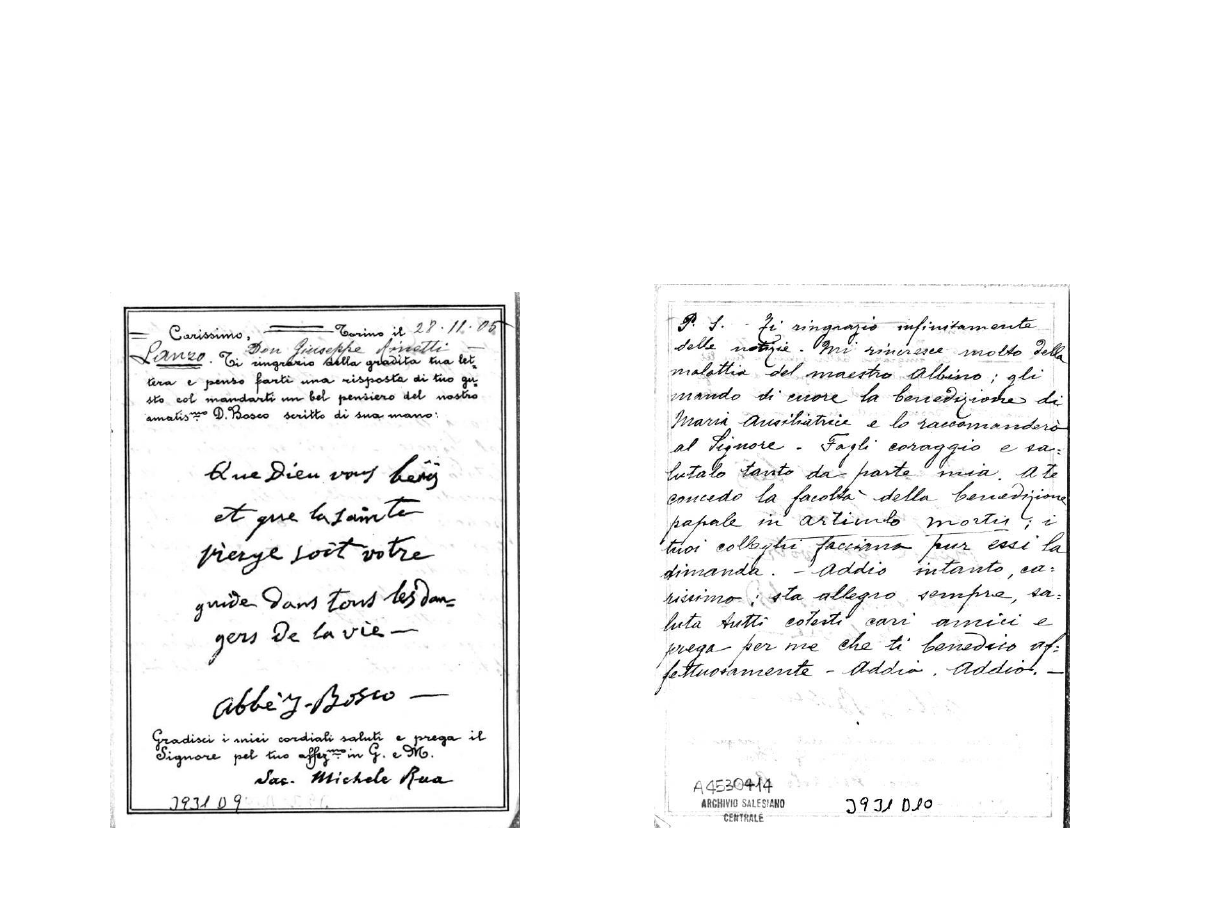 Carissimo, Torino il 28·11·05
Lanzo. Don Giuseppe
Ti ringrazio della gradita tua let-
tera e penso farti una risposta di tuo gu-
sto col mandarti un bel pensiero del nostro
amatis.mo D. Bosco scritto di sua mano:
Que Dieu vous
et que la sainte
vierge soit votre
guide dans tous les dan=
gers de la vie —
abbé J. Bosco —
Gradisci i miei cordiali saluti e prega il
Signore pel tuo affez.mo in G. e M.
Sac. Michele Rua
3931 D 9
P. S. - Ti ringrazio infinitamente
delle notizie. Mi rincresce molto della
malattia del maestro Albino; gli
mando di cuore la benedizione di
Maria Ausiliatrice e lo raccomanderò
al Signore - Fagli coraggio e sa=
lutalo tanto da parte mia. A te
concedo la facoltà della benedizione
papale in articulo mortis; i
tuoi colleghi facciano pur essi la
dimanda. - Addio intanto, ca=
rissimo; sta allegro sempre, sa=
luta tutti cotesti cari amici e
prega per me che ti benedico af=
fettuosamente - Addio. Addio. —
A4530414
ARCHIVIO SALESIANO
CENTRALE
3931 D10